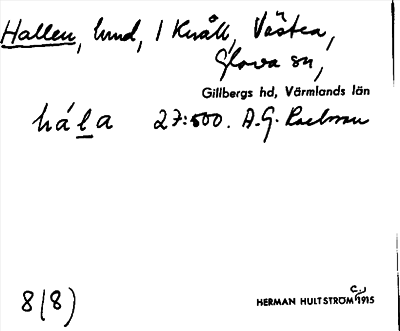 Hallen, lund, 1 Kvåll, Västra,
Glava sn,
Gillbergs hd, Värmlands län
há l a 27:500. A.G.
8(8)
HERMAN HULTSTRÖM C.J. 1915